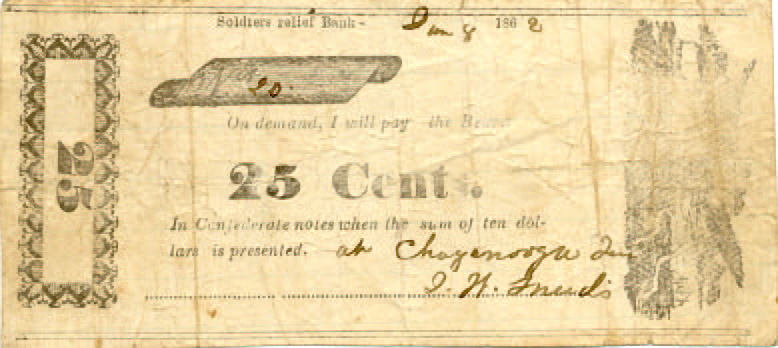 Soldiers relief Bank - Jan 8 1862
20.
On demand, I will pay the Bearer
25 Cents.
25
In Confederate notes when the sum of ten dol-
lars is presented. at Chaganooga